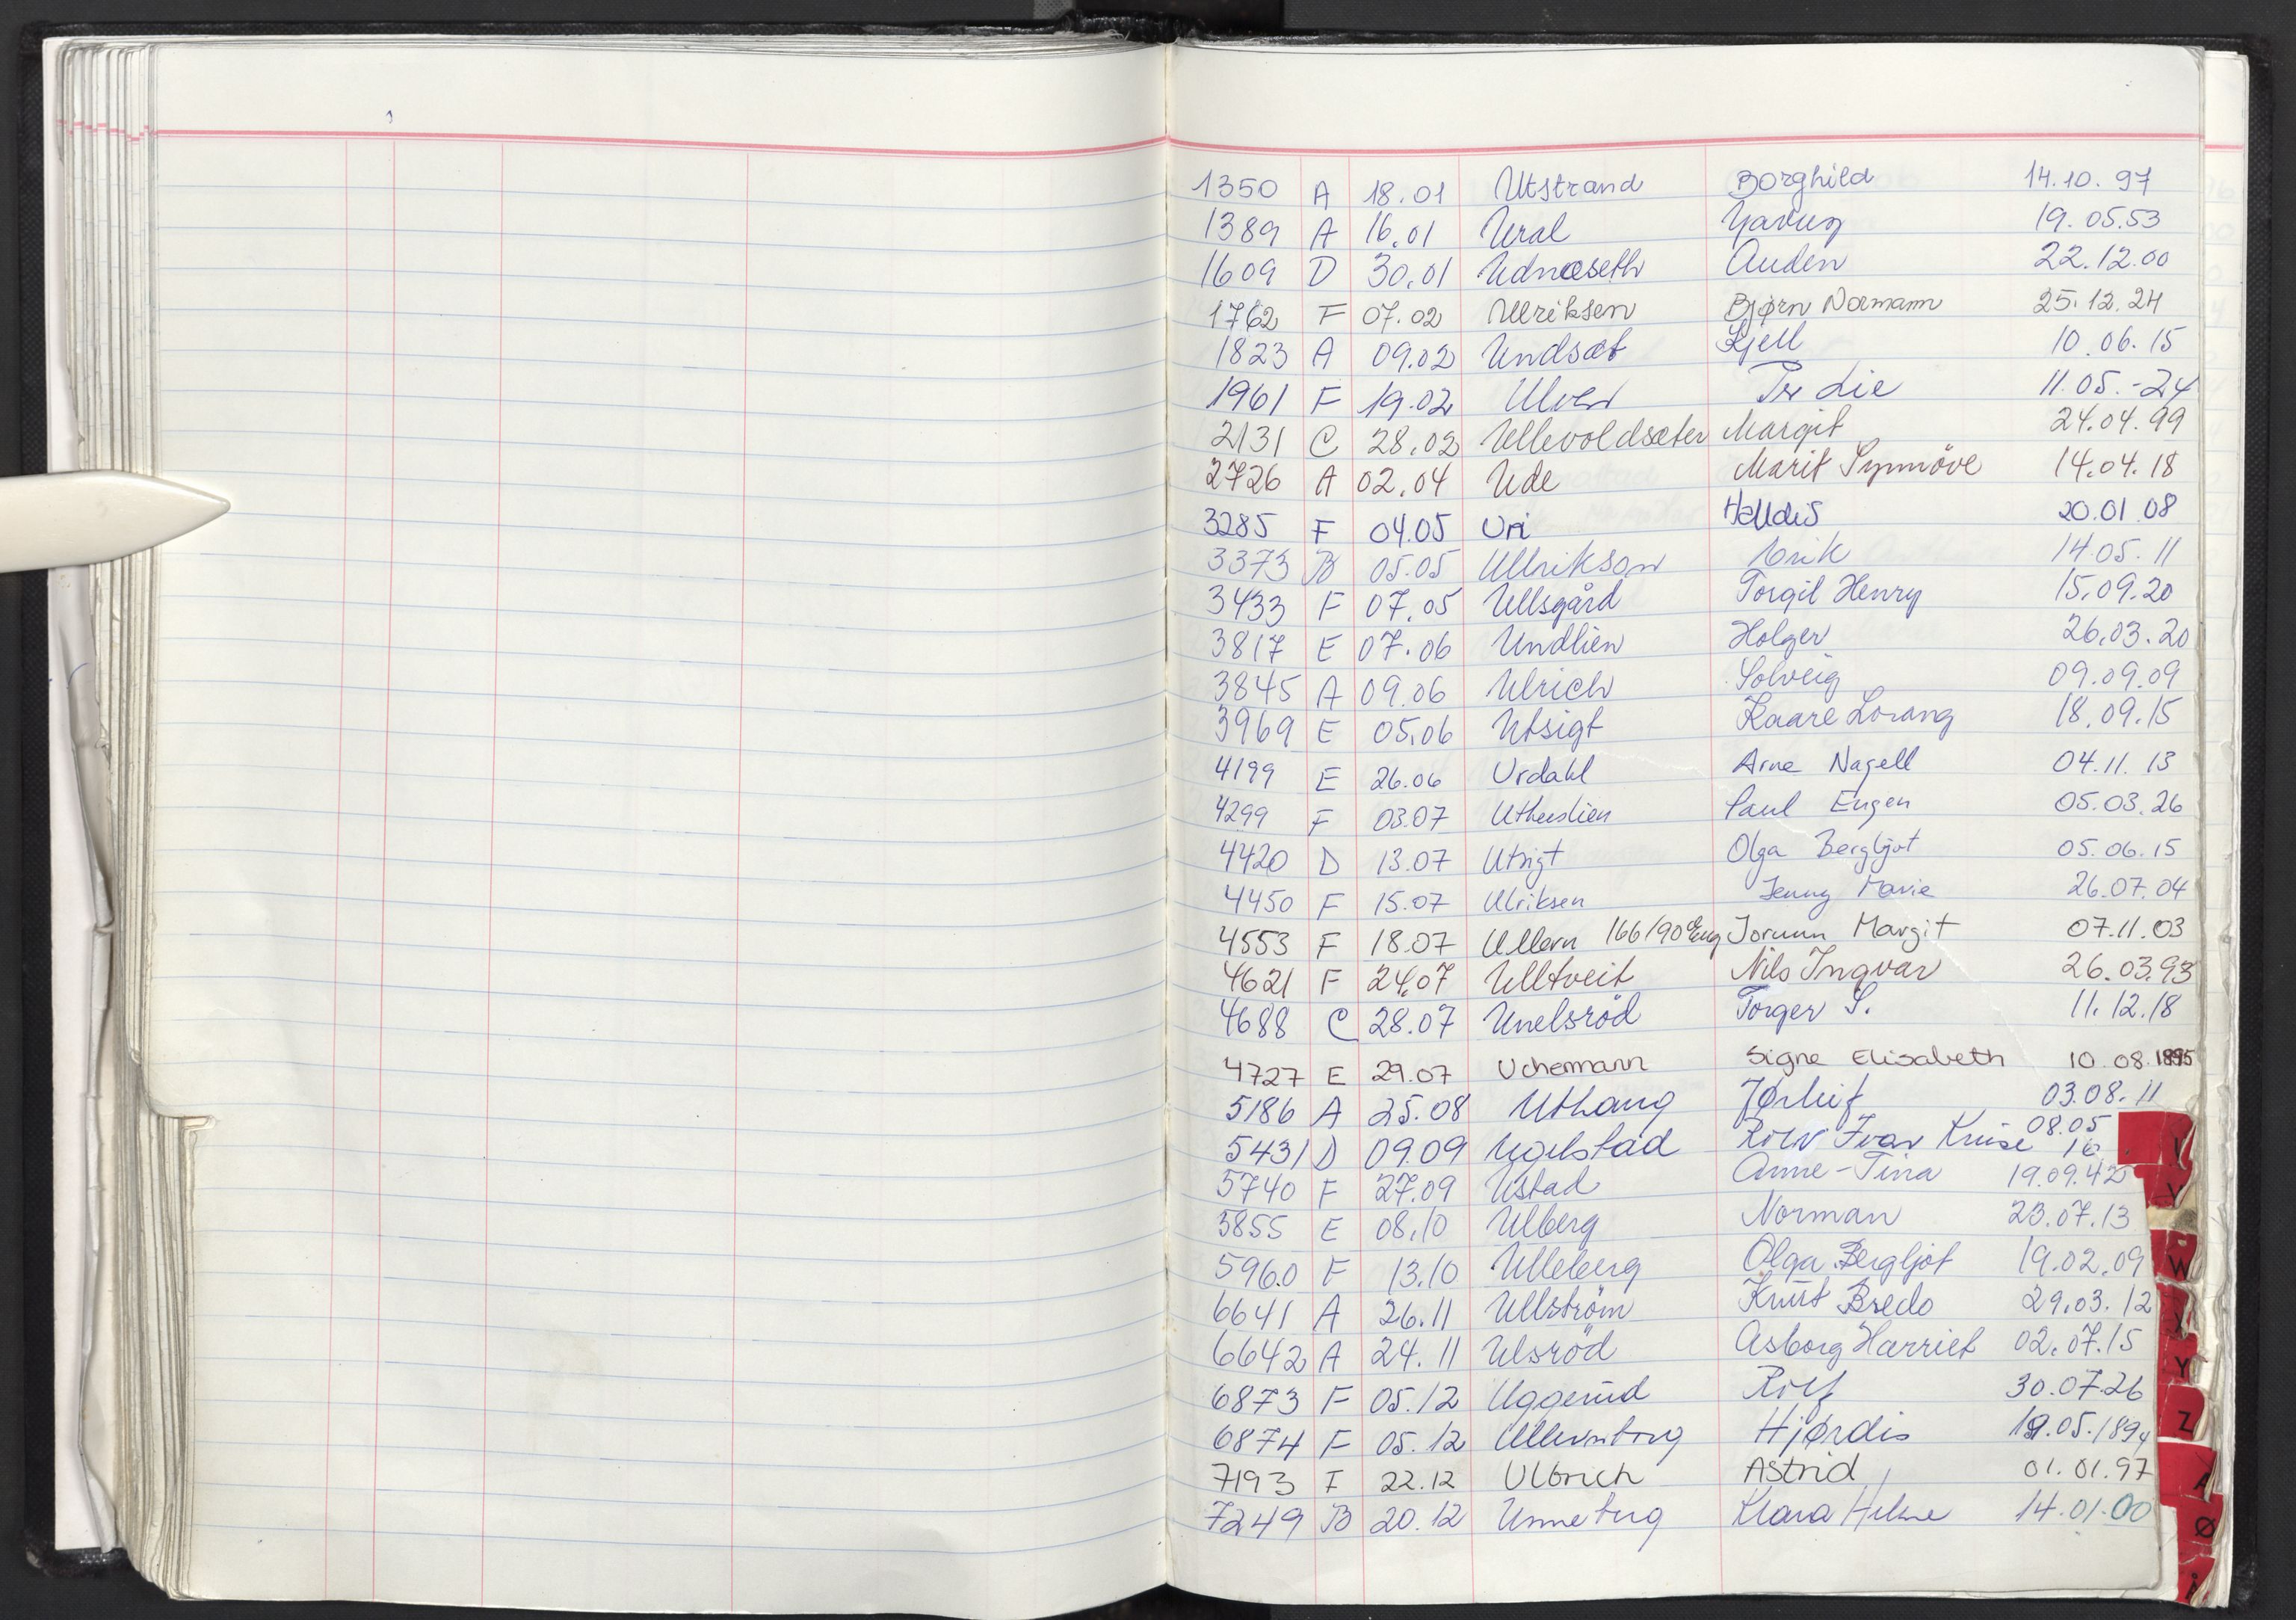 1350 A 18.01 Utstrand Borghild 14.10.97
1389 A 16.01 Ural Yavuz 19.05.53
1609 D 30.01 Udnæseth Auden 22.12.00
1762 F 07.02 Ulriksen Bjørn Normann 25.12.24
1823 A 09.02 Undsæt Kjell 10.06.15
1961 F 19.02 Ulven Lie 11.05.-24
2131 C 28.02 Ullevoldsæter Margit 24.04.99
2726 A 02.04 Ude Marit Synnöve 14.04.18
3285 F 04.05 Uri Halldis 20.01.08
3373 B 05.05 Ullrikson Erik 14.05.11
3433 F 07.05 Ullsgård Torgil Henry 15.09.20
3817 E 07.06 Undlien Holger 26.03.20
3845 A 09.06 Ulrich Solveig 09.09.09
3969 E 05.06 Utsigt Kaare Lorang 18.09.15
4199 E 26.06 Urdahl Arne Nagell 04.11.13
4299 F 03.07 Utheslien Paul Eugen 05.03.26
4420 D 13.07 Utsigt Olga Bergljot 05.06.15
4450 F 15.07 Ulriksen Jenny Marie 26.07.04
4553 F 18.07 Ullern 166/90 Jorunn Margit 07.11.03
4621 F 24.07 Ulltveit Nils Ingvar 26.03.93
4688 C 28.07 Unelsröd Torger S. 11.12.18
4727 E 29.07 Uchermann Signe Elisabeth 10.08.1895
5186 A 25.08 Uthaug Jørleif 03.08.11
5431 D 09.09 Ugelstad Rolv Ivar Kruse 08.05 16
5740 F 27.09 Ustad Anne-Tina 19.09.42
5855 E 08.10 Ulberg Norman 23.07.13
5960 F 13.10 Ulleberg Olga Bergljot 19.02.09
6641 A 26.11 Ullström Knut Bredo 29.03.12
6642 A 24.11 Ulsröd Asborg Harriet 02.07.15
6873 F 05.12 Uggerud Rolf 30.07.26
6874 F 05.12 Ullernborg Hjørdis 19.05.1894
7193 F 22.12 Ulbrich Astrid 01.01.97
7249 B 20.12 Unneberg Klara Helene 14.01.00
V
V
W
Y
Z
Ø
Å